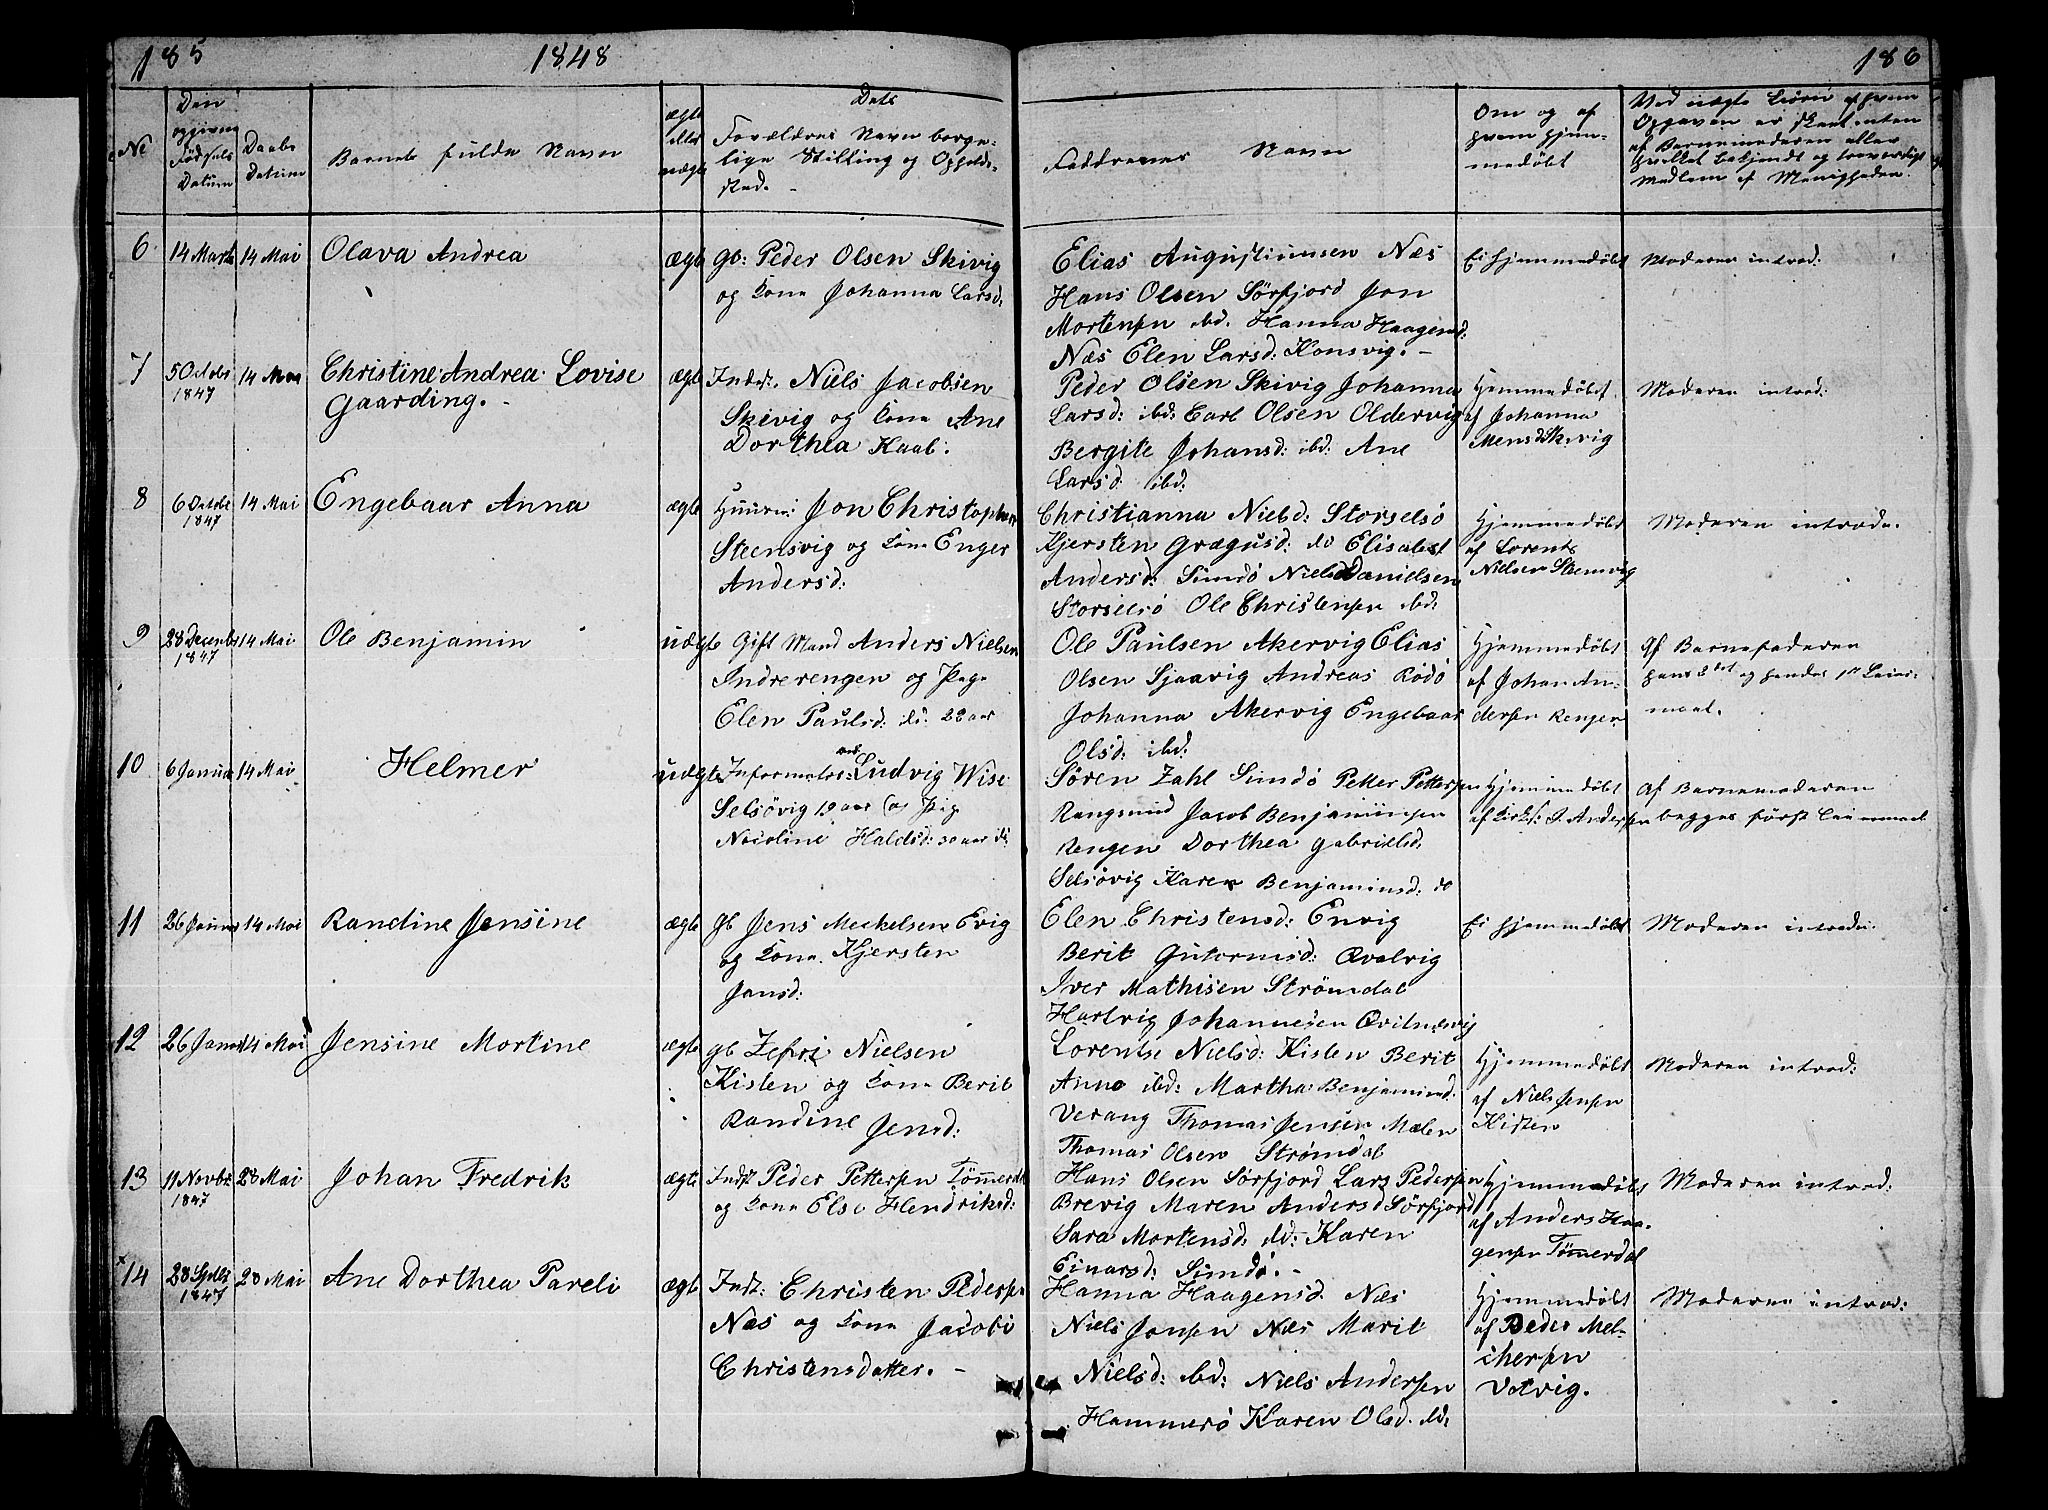 185 1848 186
No
Den opgivne Fødsels Datum
Daabs Datum
Barnets fulde Navn
ægte eller uægte
Dets Forældres Navn borgelige Stilling og Opholdssted.
Faddrenes Navn
Om og af hvem hjemmedøbt
Ved uægte Børn af hvem Opgaven er skeet enten af Barnemoderen eller hvilket bekjendt og troværdigt Medlem af Menigheden.
6 14 Marts 14 Mai Olava Andrea ægte gb: Peder Olsen Skivig
og Kone Johanna Larsd:
Elias Augustinusen Næs
Hans Olsen Sörfjord Jon
Mortensen ibd. Hanna Haagensd:
Næs Elen Larsd: Konsvig. -
Ei hjemmedøbt
Moderen introd:
7 5 Octobr 1847 14 Mai Christine Andrea Lovise
Gaarding. -
ægte Inds: Niels Jacobsen
Skivig og Kone Ane
Dorthea Kaal.
Peder Olsen Skivig Johanna
Larsd: ibd: Carl Olsen Oldervig
Bergite Johansd: ibd: Ane
Larsd: ibd:
Hjemmedøbt
af Johanna
Mensd Skivig
Moderen introd:
8 6 Octobr 1847 14 Mai Engebaar Anna
ægte Huusm: Jon Christophersen
Steensvig og Kone Enger
Andersd:
Christianna Nielsd: Storselsö
Kjersten Grægusd: do Elisabet
Andersd: Simdö Niels Danielsen
Storselsö Ole Christensen ibd:
Hjemmedøbt
af Lorents
Nielsen Stensvig
Moderen introde.
9 28 Decembr 1847 14 Mai Ole Benjamin
uægte Gift Mand Anders Nielsen
Indrerengen og Pige
Elen Paulsd: do: 22 aar
Ole Paulsen Akervig Elias
Olsen Sjaavig Andreas Rödö
Johanna Akervig Engebaar
Olsd: ibd:
Hjemmedøbt
af Johan An-
dersen Rengen
Af Barnefaderen
hans 2det og hendes 1ste Leier-
maal.
10 6 Januar 14 Mai Helmer
uægte Informator: Ludvig Wise
Selsövig 19 aar og Pig
Nicoline Haldsd: 30 aar do:
Sören Zahl Simdö Petter Pettersen
Rangsund Jacob Benjaminsen
Rengen Dorthea Gabrielsd:
Selsövig Karen Benjaminsd: do
Hjemmedøbt
af Kirks: J. Andersen
Af Barnemoderen
begges først Leiermaal
11 26 Januar 14 Mai Randine Jensine
ægte gb Jens Meekelsen Evig
og Kone Kjersten
Jansd:
Elen Christensd: Envig
Berit Gutormsd: Qvalvig
Iver Mathisen Strömdal
Hartvig Johannesen
Ei hjemmedøbt
Moderen introde:
12 26 Janr 14 Mai Jensine Mortine
ægte gb Zefri Nielsen
Kisten og Kone Berit
Randine Jensd:
Lorentse Nielsd: Kisten Berit
Anna ibd: Martha Benjaminsd:
Verang Thomas Jensen Mælen
Thomas Olsen Strömdal
Hjemmedøbt
af Niels Jensen
Kisten
Moderen introd:
13 11 Novbr 1847 28 Mai Johan Fredrik
ægte Inds: Peder Pettersen Tömmerdal
og Kone Else Hendriksd:
Hans Olsen Sörfjord Lars Pedersen
Brevig Maren Andersd Sörfjord
Sara Mortensd: ibd: Karen
Einarsd: Simdö. -
Hjemmedøbt
af Anders Haa-
gensen Tömmerdal
Moderen introd:
14 28 Septbr 1847 28 Mai Ane Dorthea Pareli
ægte Inds: Christen Pedersen
Næs og Kone Jacobi
Christensdatter. -
Hanna Haagensd. Næs
Niels Jonsen Næs Marit
Nielsd: ibd: Niels Andersen
Hammerö Karen Olsd. ibd:
Hjemmedøbt
af Peder Mel-
chersen
Votvig.
Moderen introd: